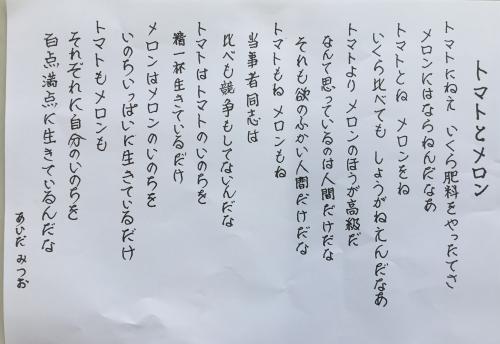 トマトとメロン
トマトにねえ いくら肥料をやったてさ
メロンにはならねんだなあ
トマトとね メロンをね
いくら比べても しょうがねえんだなあ
トマトより メロンのほうが高級だ
なんて思っているのは人間だけだな
それも欲のふかい人間だけだな
トマトもね メロンもね
当事者同志は
比べも競争もしてないんだな
トマトはトマトのいのちを
精一杯生きているだけ
メロンはメロンのいのちを
いのちいっぱいに生きているだけ
トマトもメロンも
それぞれに自分のいのちを
百点満点に生きているんだな
あいだ みつお